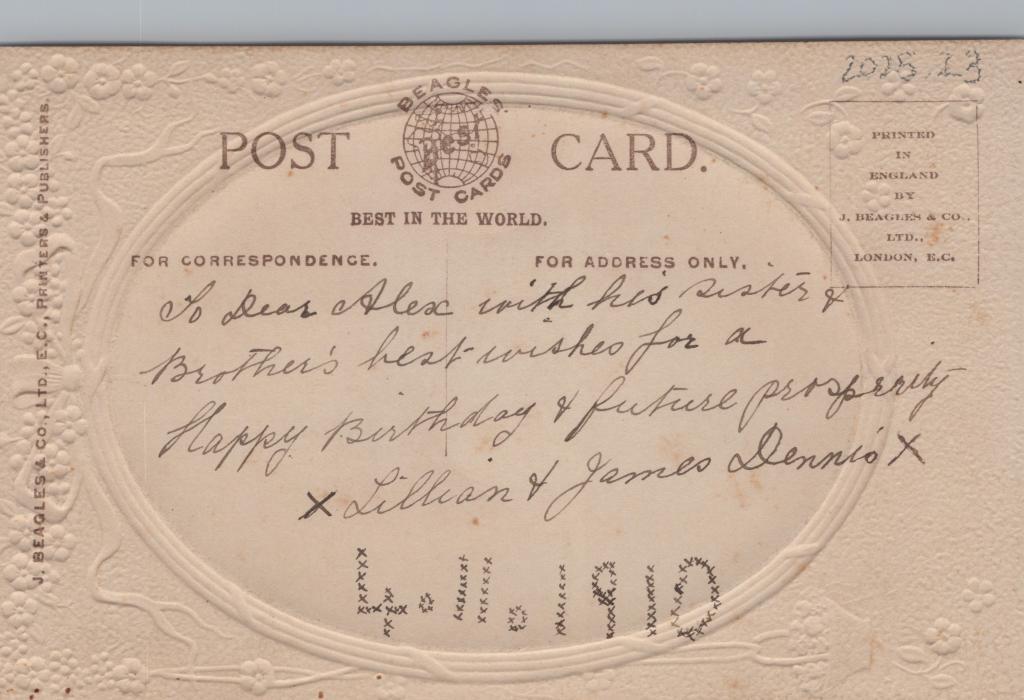 2025.23
BEAGLES'
POST Best CARD.
POST CARDS
BEST IN THE WORLD.
PRINTED
IN
ENGLAND
BY
J. BEAGLES & CO.,
LTD.,
LONDON, E.C.
FOR CORRESPONDENCE. FOR ADDRESS ONLY.
To Dear Alex with his sister &
Brother's best wishes for a
Happy Birthday & future prosperrity
x Lillian & James Dennis x
4.11.1910
J. BEAGLES & CO., LTD., E.C., PRINTERS & PUBLISHERS.